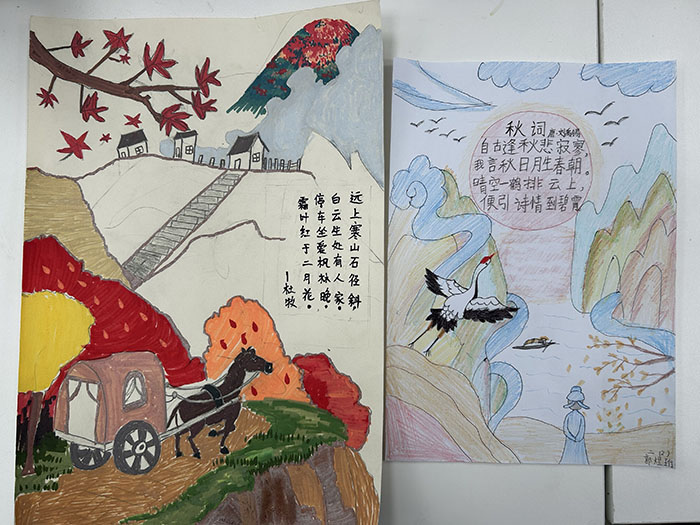 远上寒山石径斜,
白云生处有人家。
停车坐爱枫林晚,
霜叶红于二月花。
—杜牧
秋词 唐·刘禹锡
自古逢秋悲寂寥,
我言秋日胜春朝。
晴空一鹤排云上,
便引诗情到碧霄
二(2)